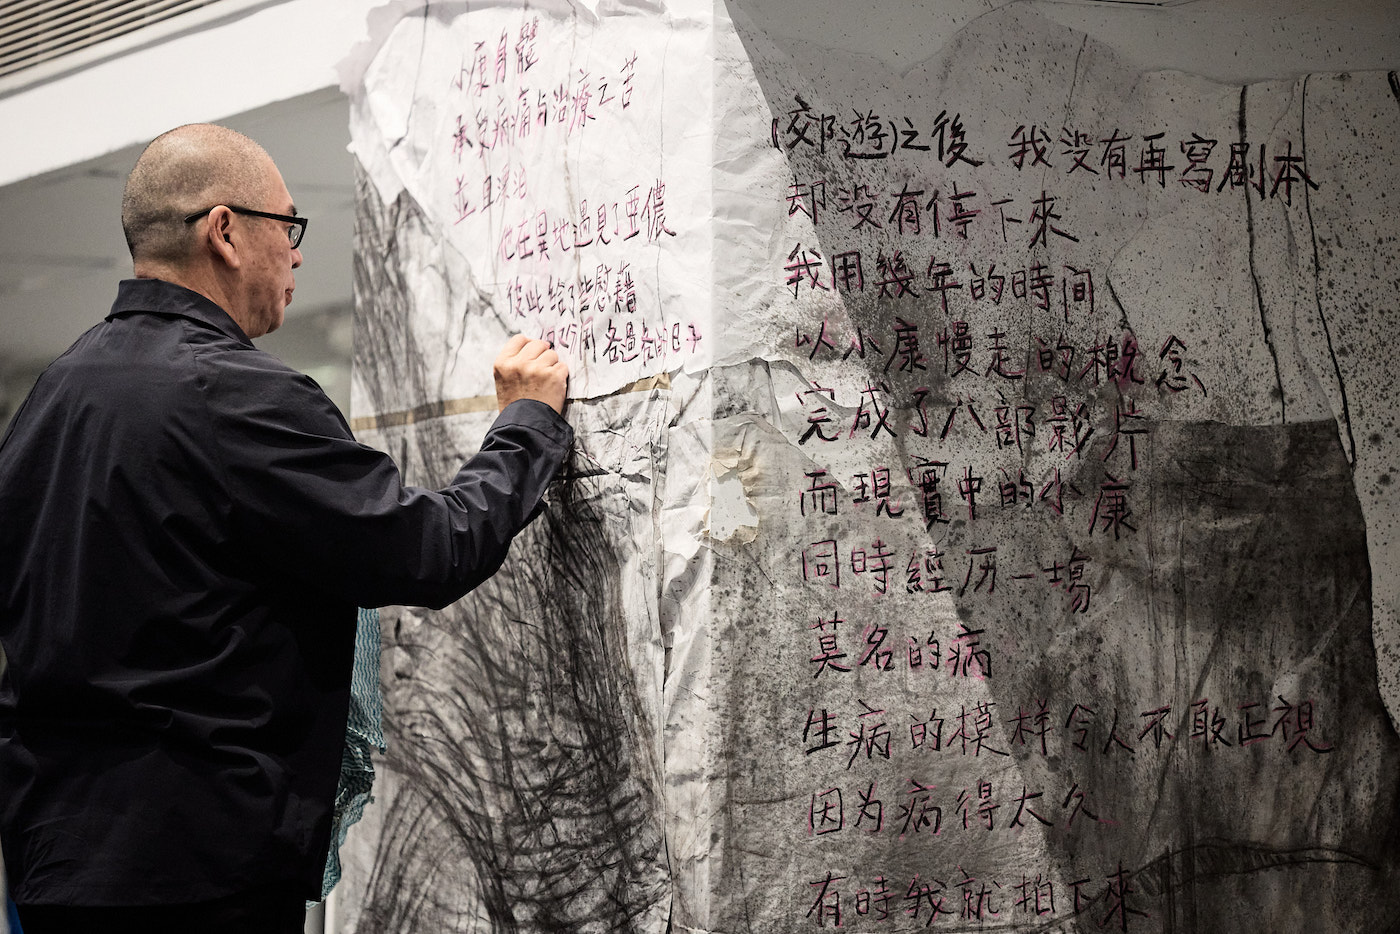 小康身體
承受病痛与治療之苦
並且漂泊
他在異地遇見了亞儂
彼此給了些慰藉
但又分開各過各的日子
(郊遊)之後 我没有再寫剧本
却没有停下來
我用幾年的時间
以小康慢走的概念
完成了八部影片
而現實中的小康
同時經历一場
莫名的病
生病的模样令人不敢正視
因为病得太久
有時我就拍下來